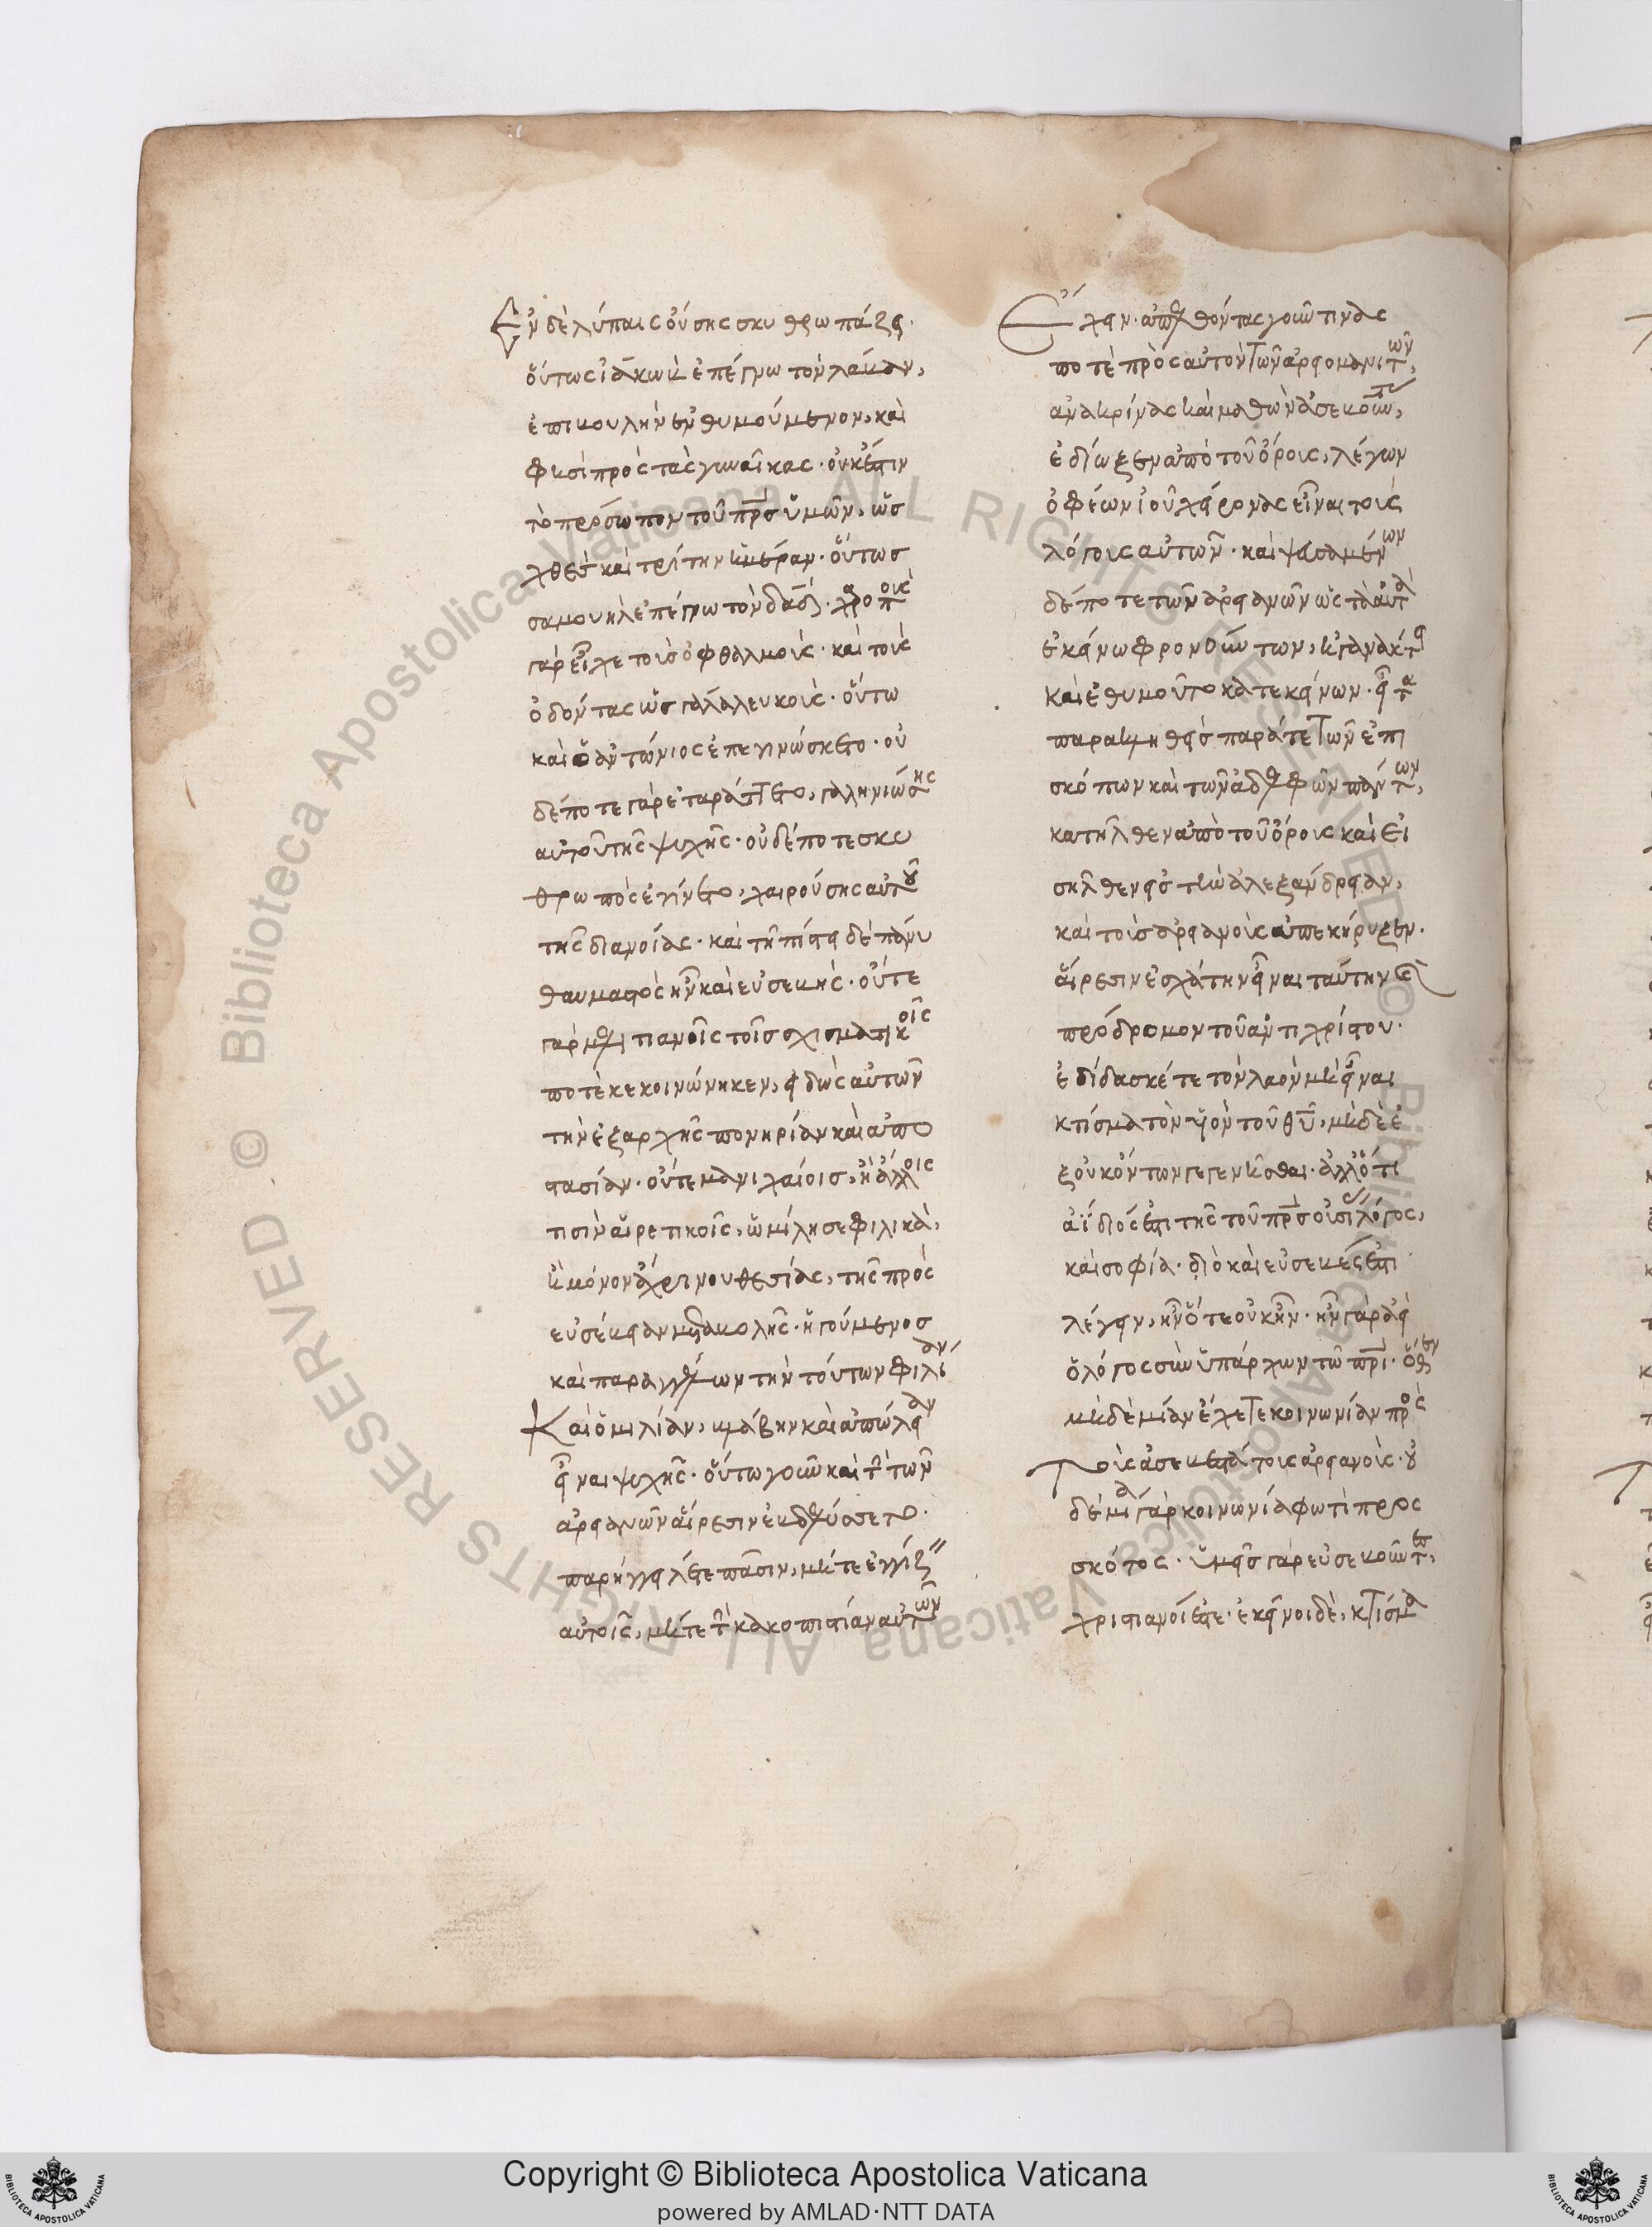 Ἐν δὲ λύπαις οὔσης σκυθρωπάζει·
οὕτως ἰακὼβ ἐπέγνω τὸν λάβαν,
ἐπιβουλὴν ἐνθυμούμενον, καὶ
φησὶ πρὸς τὰς γυναῖκας· οὐκ ἔστιν
τὸ πρόσωπον τοῦ πρς ὑμῶν, ὡσ
χθὲσ καὶ τρίτην ἡμέραν· οὕτωσ
σαμουὴλ ἐπέγνω τὸν δαδ· χαροποιοὺς
γὰρ εἶχε τοὺσ ὀφθαλμοὺς· καὶ τοὺς
ὀδόντας ὡσ γάλα λευκοὺς· οὕτω
καὶ ὁ ἀντώνιος ἐπεγινώσκετο· οὐ
δέποτε γὰρ ἐταράττετο, γαληνιώσης
αὐτοῦ τῆς ψυχῆς· οὐδέποτε σκυ
θρωπὸς ἐγίνετο, χαιρούσης αὐτοῦ
τῆς διανοίας· καὶ τῆ πίστει δὲ πάνυ
θαυμαστὸς ἦν καὶ εὐσεβής· οὔτε
γὰρ μελετιανοῖς τοῖσ σχισματικοῖς
ποτὲ κεκοινώνηκεν, εἰδὼς αὐτῶν
τὴν ἐξαρχῆς πονηρίαν καὶ ἀπο
στασίαν· οὔτε μανιχαίοισ, ἢ ἄλλοις
τισὶν αἱρετικοῖς, ὡμίλησε φιλικὰ,
ἢ μόνον ἄχρι νουθεσίας, τῆς πρὸς
εὐσέβειαν μεταβολῆς· ἡγούμενοσ
καὶ παραγγέλλων τὴν τούτων φιλίαν
Καὶ ὁμιλίαν, βλάβην καὶ ἀπώλειαν
εἶναι ψυχῆς· οὕτω γοῦν καὶ τὴν τῶν
ἀρειανῶν αἵρεσιν ἐβδελύσσετο·
παρήγγελλέ τε πᾶσιν, μήτε ἐγγίζειν
αὐτοῖς, μήτε τὴν κακοπιστίαν αὐτῶν
Ἔχειν· ἀπελθόντας γοῦν τινὰς
ποτὲ πρὸς αὐτὸν τῶν ἀρειομανιτῶν,
ἀνακρίνας καὶ μαθὼν ἀσεβοῦντας,
ἐδίωξεν ἀπὸ τοῦ ὄρους, λέγων
ὄφέων ἰοῦ χείρονας εἶναι τοὺς
λόγους αὐτῶν· καὶ ψευσαμένων
δέποτε τῶν ἀρειανῶν ὡς τὰ αὐτὰ
ἐκείνω φρονούντων, ἠγανάκτει
καὶ ἐθυμοῦτο κατ εκείνων· εἶτα
παρακληθεὶσ παρά τε τῶν ἐπι
σκόπων καὶ τῶν ἀδελφῶν πάντων,
κατῆλθεν ἀπὸ τοῦ ὄρους καὶ εἰ
σῆλθεν εἰσ τὴν ἀλεξάνδρειαν,
καὶ τοὺσ ἀρειανοὺς ἀπεκήρυξεν.
αἵρεσιν ἐσχάτην εἶναι ταύτην καὶ
πρόδρομον τοῦ ἀντιχρίστου·
ἐδίδασκέ τε τὸν λαὸν μὴ εἶναι
κτίσμα τὸν υἱὸν τοῦ θυ, μηδὲ ἐ
ξουκόντων γεγενῆσθαι· ἀλλ ὅτι
ἀΐδιός ἐστι τῆς τοῦ πρσ οὐσίας λόγος,
καὶ σοφία· διὸ καὶ εὐσεβές ἐστι
λέγειν, ἦν ὅτε οὐκ ἦν· ἦν γὰρ ἀεὶ
ὁ λόγος σὺν ὑπάρχων τῶ πρι· ὅθεν
μηδὲ μίαν ἔχετε κοινωνίαν πρὸς
Τοὺς ἀσεβεστάτους ἀρειανοὺς· οὐ
δὲ μία γὰρ κοινωνία φωτὶ πρὸς
σκότος· ὑμεῖσ γὰρ εὐσεβοῦντες,
χριστιανοί ἐστε· ἐκεῖνοι δὲ, κτίσμα